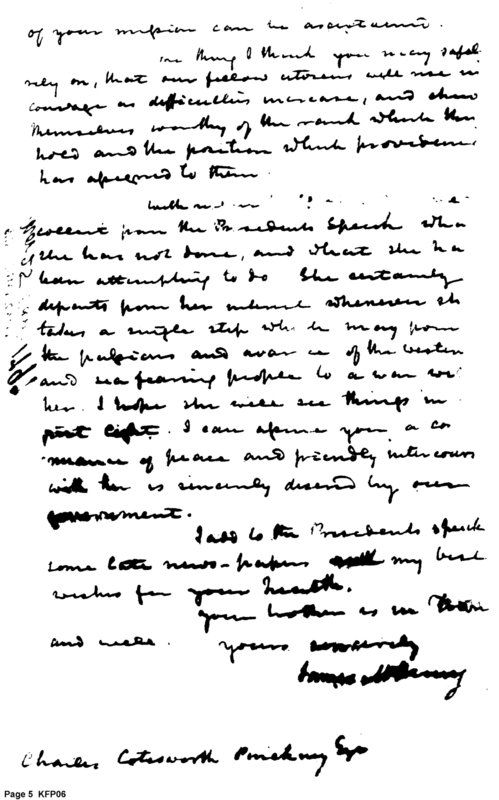 of your mission can be ascertained.
one thing I think you may safel
rely on, that our fellow citizens will rise in
courage as difficulties increase, and shew
themselves worthy of the rank which they
hold and the position which providence
has assigned to them.
with
collect from the Presidents Speech wha
she has not done, and what she ha
been attempting to do She certainly
departs from her interest whenever sh
takes a single step which may from
the passions and avarice of the Eastern
and sea faring people to a war wi
her. I hope she will see things in
just light. I can assure you a co
nuance of peace and friendly intercours
with her is sincerely desired by our
government.
I add to the Presidents speech
some late news-papers with my best
wishes for your health.
Your brother is in Town
and well. yours sincerely
James McHenry
Charles Cotesworth Pinckney Esqr
Page 5 KFP06